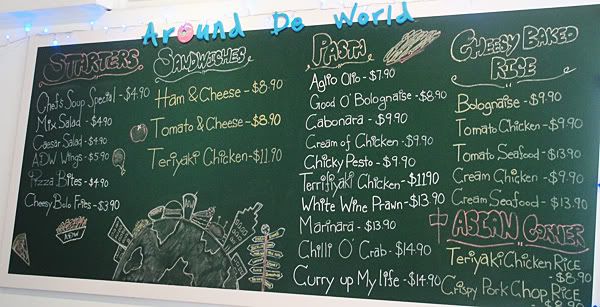 Around De World
STARTERS
Chef's Soup Special - $4.90
Mix Salad - $4.90
Caesar Salad - $4.90
ADW Wings - $5.90
Pizza Bites - $4.90
Cheesy Bolo Fries - $3.90
SANDWICHES
Ham & Cheese - $8.90
Tomato & Cheese - $8.90
Teriyaki Chicken - $11.90
PASTA
Aglio Olio - $7.90
Good O' Bolognaise - $8.90
Cabonara - $9.90
Cream of Chicken - $9.90
Chicky Pesto - $9.90
Terrifiyaki Chicken - $11.90
White Wine Prawn - $13.90
Marinara - $13.90
Chilli O' Crab - $14.90
Curry up My life - $14.90
CHEESY BAKED
RICE
Bolognaise - $9.90
Tomato Chicken - $9.90
Tomato Seafood - $13.90
Cream Chicken - $9.90
Cream Seafood - $13.90
中 ASEAN CORNER
Teriyaki Chicken Rice
- $8.90
Crispy Pork Chop Rice